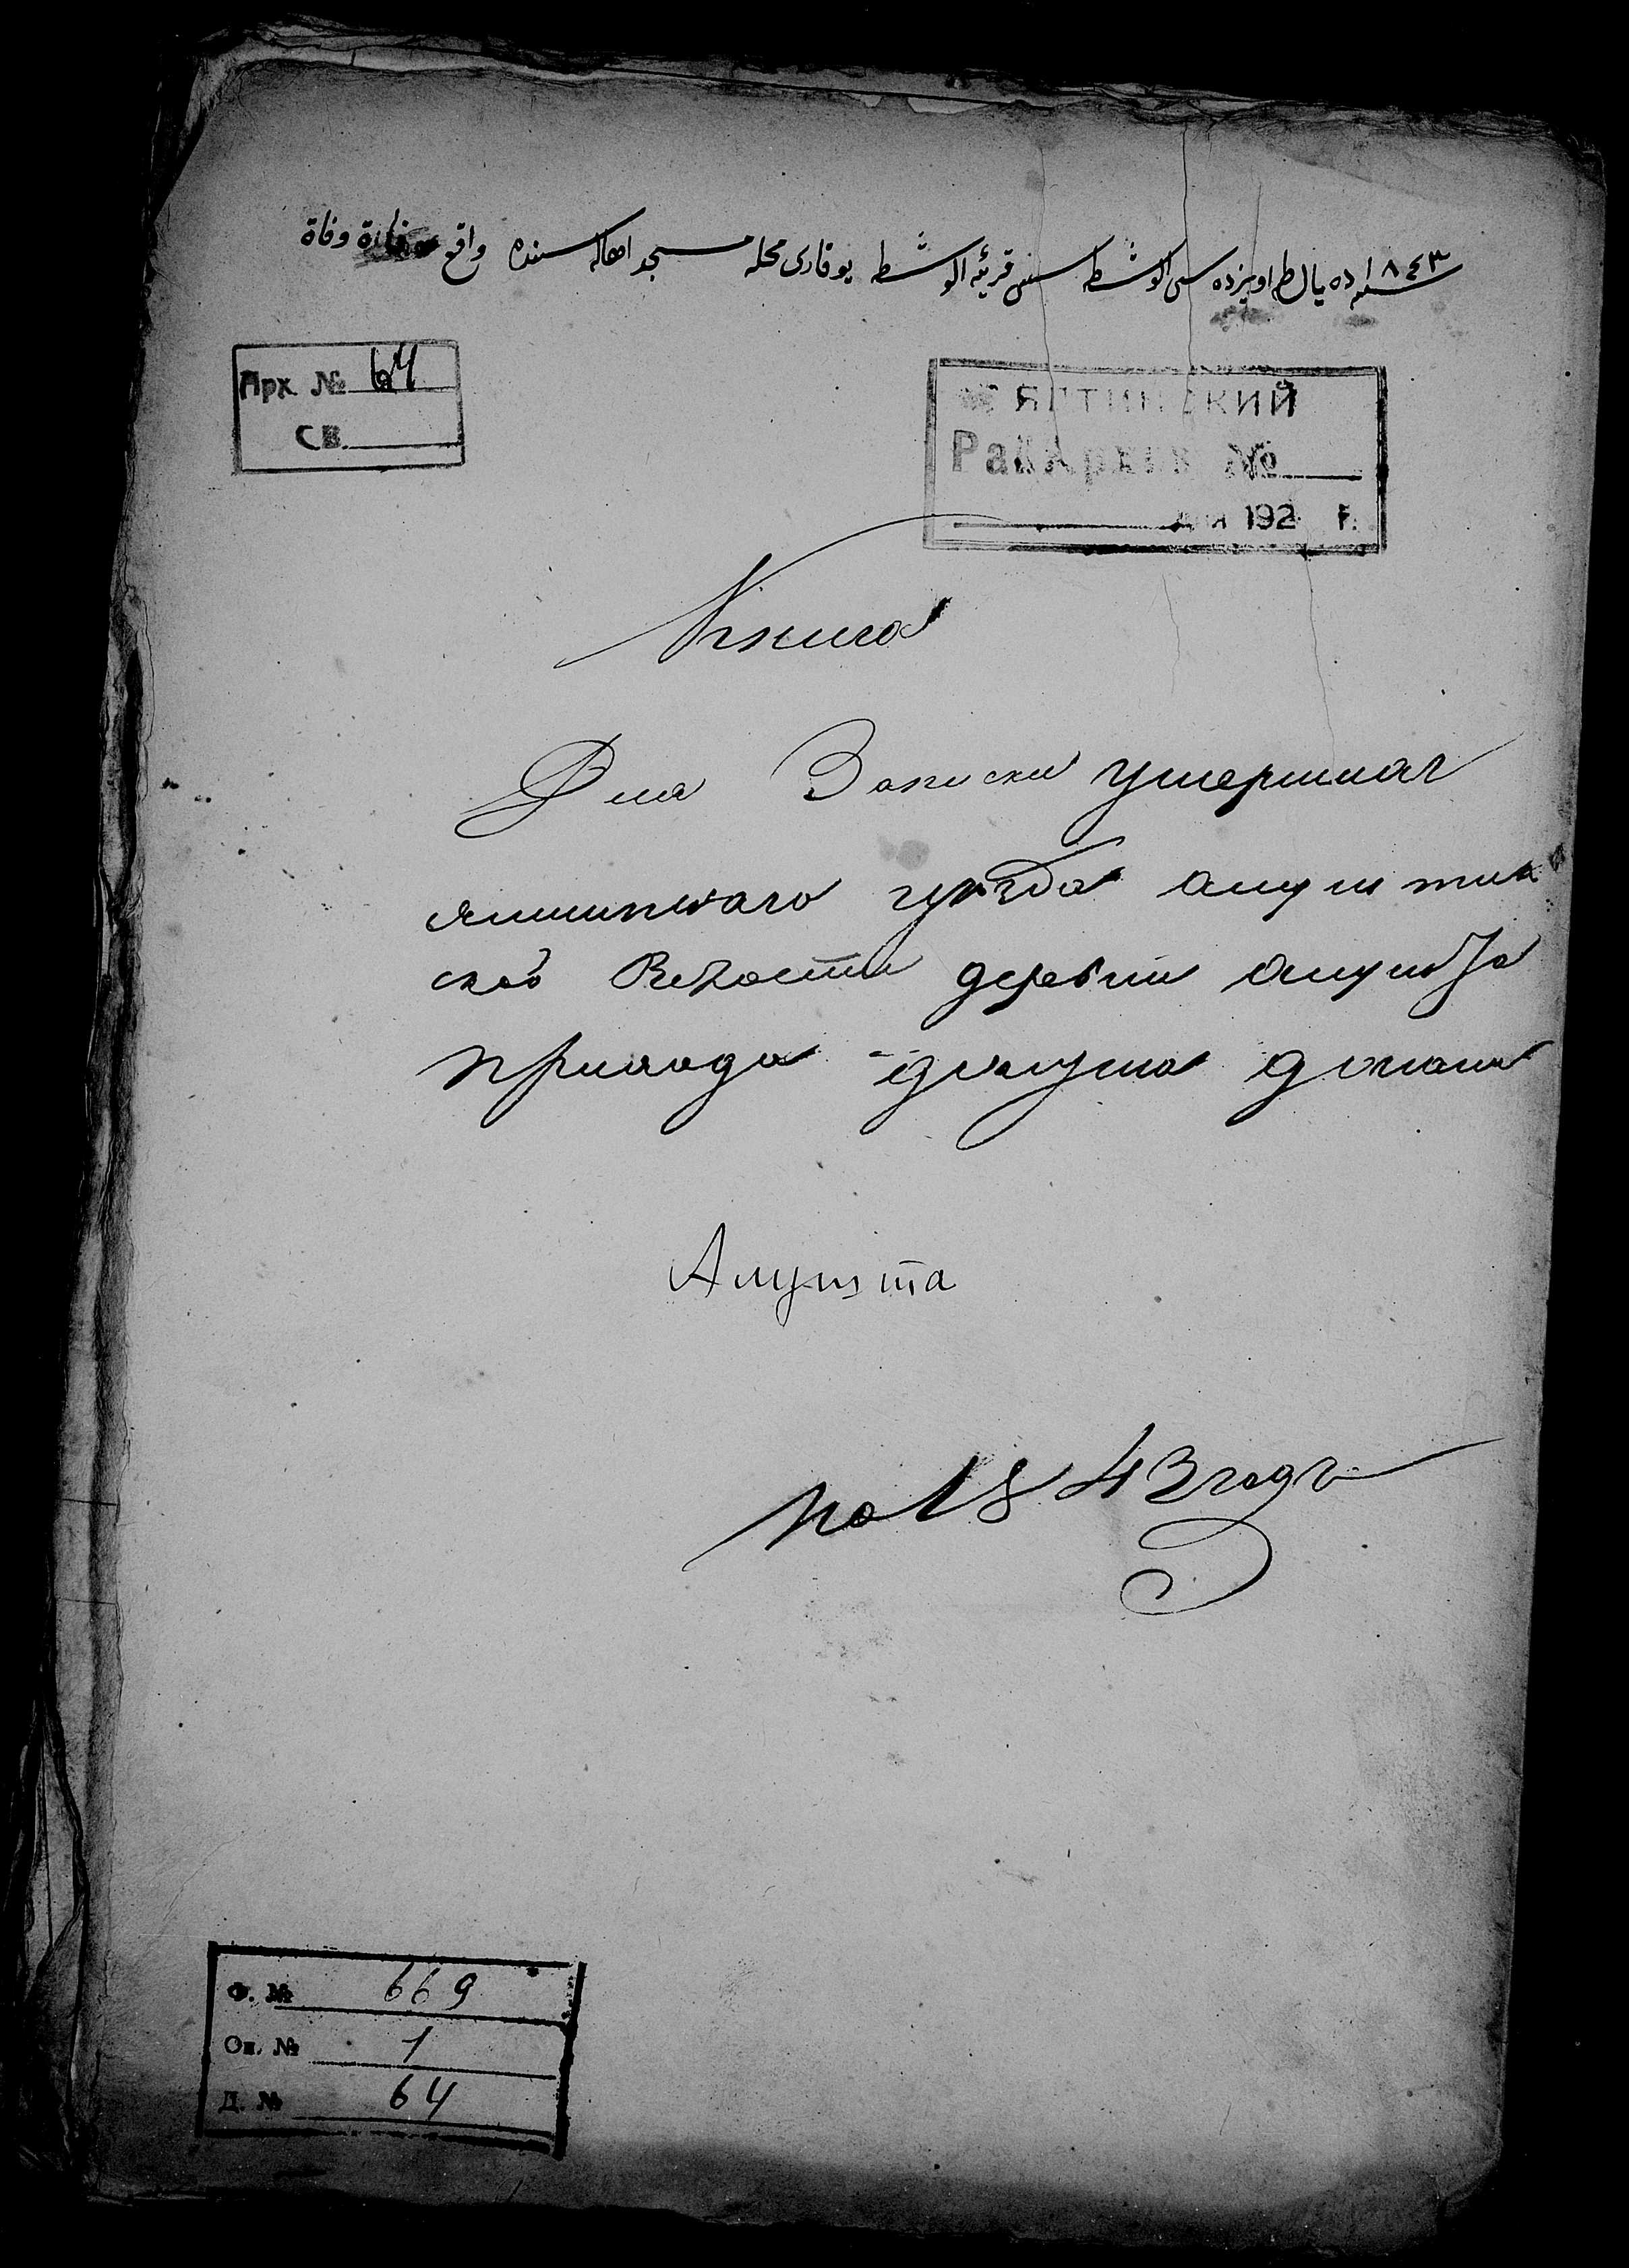 ١٨٤٣ سنه ده يالطه اويزده سى الوشطه سنى قريۀ الوشطه يوقارى محله مسجد اهاليسنده واقع وفاة
Арх. № 64
СВ.
ЯЛТИНСКИЙ
РайАрхив №
дня 192 г.
Книга
Для Записки умершихъ
ялтинскаго уѣзда алуштин
ской Волости деревни алушта
прихода
Алушта
на 1843 годъ
Ф. № 669
Оп. № 1
Д. № 64